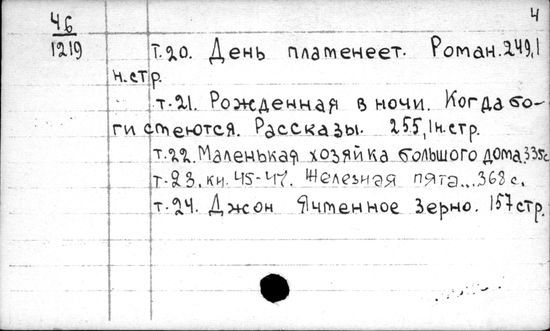 4
46
1219
т.20. День пламенеет. Роман. 249,1
н.стр.
т.21. Рожденная в ночи. Когда бо-
ги смеются. Рассказы. 255,1н.стр.
т.22. Маленькая хозяйка большого дома. 335с
т.23. кн. 45-47. Железная пята... 368 с.
т.24. Джон Ячменное Зерно. 157 стр.